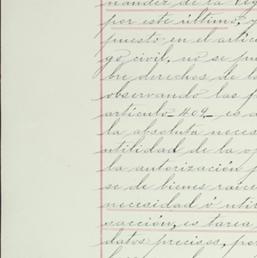 nandez de la Veg
por este último, y
puesto en el artícu
go civil, no se pue
bre derechos de lo
observando las f
artículo 409 es a
la absoluta neces
utilidad de la op
la autorización p
se de bienes raíce
necesidad ó util
racción, es tarea
datos precisos, por